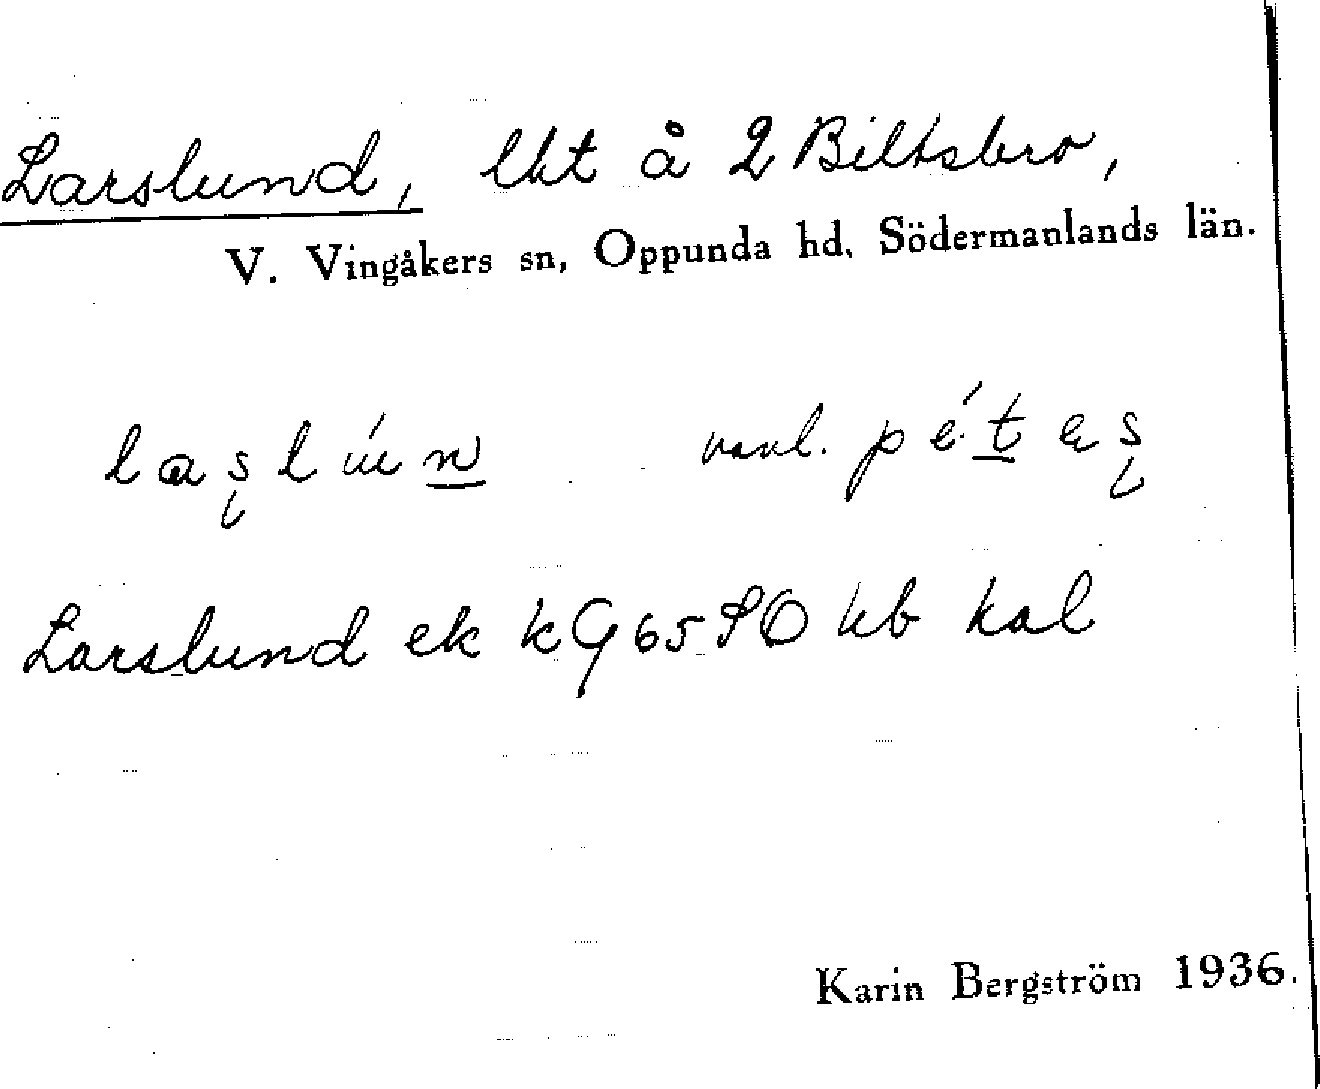 Larslund, lht å 2 Biltsbro,
V. Vingåkers sn, Oppunda hd, Södermanlands län.
laşlún vanl. pé·teş
Larslund ek kG 65 SO kb kal
Karin Bergström 1936.